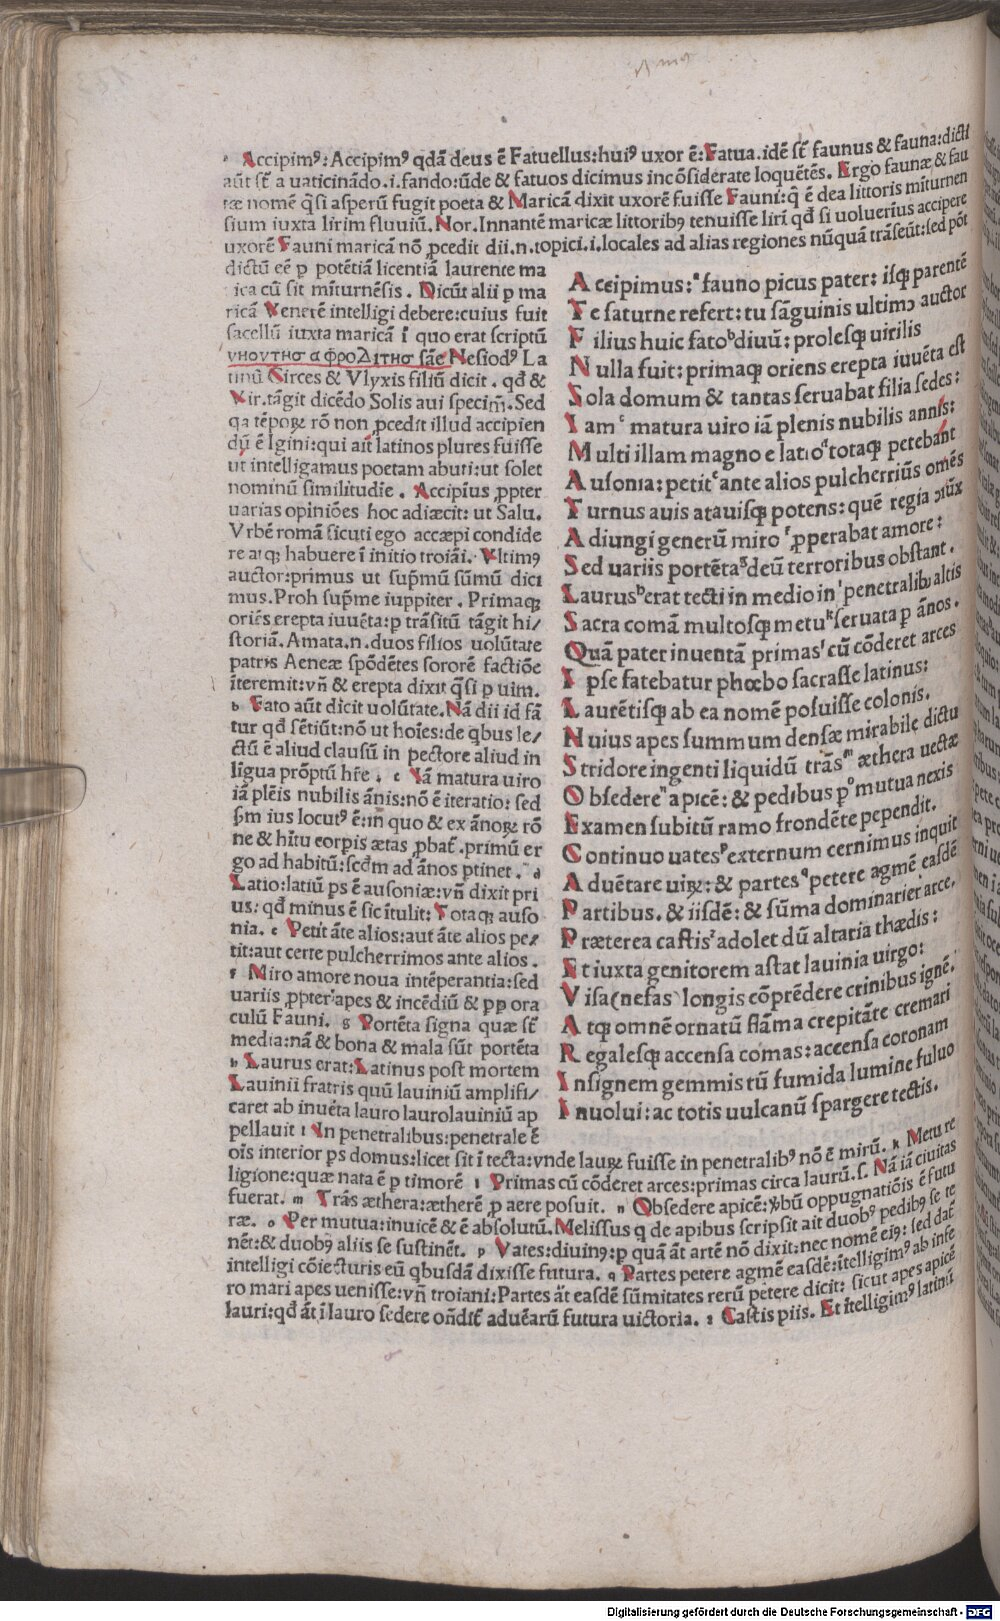 Accipimꝰ: Accipimꝰ qdā deus ē Fatuellus: huiꝰ uxor ē: Fatua. idē st̄ faunus & fauna: dicti
aūt st̄ a uaticinādo. i. fando: ūde & fatuos dicimus incōsiderate loquētēs. Ergo faunæ & fau
næ nomē q̄si asperū fugit poeta & Maricā dixit uxorē fuisse Fauni: q̄ ē dea littoris mīturnen
sium iuxta lirim fluuiū. Nor. Innantē maricæ littoribꝰ tenuisse lirī qđ si uoluerius accipere
uxorē Fauni maricā nō ꝓcedit dii. n. topici. i. locales ad alias regiones nūquā trāseūt: sed pōt
dictū eē p potētiā licentiā laurente ma
rica cū sit mīturnēsis. Dicūt alii p ma
ricā Venerē intelligi debere: cuius fuit
sacellū iuxta maricā ī quo erat scriptū
γΗΟΥΤΗσ αφροΔΙΤΗσ sāe Hesiodꝰ La
tinū Circes & Vlyxis filiū dicit. qđ &
Vir. tāgit dicēdo Solis aui specim̄. Sed
qa tēpoꝝ rō non ꝓcedit illud accipien
dū ē Igini: qui ait latinos plures fuisse
ut intelligamus poetam abuti: ut solet
nominū similitudīe. Accipius ꝓpter
uarias opiniōes hoc adiæcit: ut Salu.
Vrbē romā sicuti ego accæpi condide
re atqꝫ habuere ī initio troiāi. Vltimꝰ
auctor: primus ut sup̄mū sūmū dici
mus. Proh sup̄me iuppiter. Primaqꝫ
oriēs erepta iuuēta: p trāsitū tāgit hi/
storiā. Amata. n. duos filios uolūtate
patris Aeneæ spōdētes sororē factiōe
īteremit: vn̄ & erepta dixit q̄si p uim.
b Fato aūt dicit uolūtate. Nā dii id fā
tur qđ sētiūt: nō ut hoīes: de qbus le/
ctū ē aliud clausū in pectore aliud in
ligua prōptū hr̄e. c Nā matura uiro
iā plēis nubilis ānis: nō ē iteratio: sed
p̄m ius locutꝰ ē: in quo & ex ānoꝝ rō
ne & hītu corpis ætas ꝓbat̄. primū er
go ad habitū: scđm ad ānos ptinet. d
Latio: latiū ps ē ausoniæ: vn̄ dixit pri
us: qđ minus ē sic ītulit: Totaqꝫ auso
nia. e Petit āte alios: aut āte alios pe/
tit: aut certe pulcherrimos ante alios.
f Miro amore noua intēperantia: sed
uariis ꝓpter apes & incēdiū & ꝓp ora
culū Fauni. g Portēta signa quæ st̄
media: nā & bona & mala sūt portēta
h Laurus erat: Latinus post mortem
Lauinii fratris quū lauiniū amplifi/
caret ab inuēta lauro laurolauiniū ap
pellauit i In penetralibus: penetrale ē
Accipimus: a fauno picus pater: isqꝫ parentē
Te saturne refert: tu sāguinis ultimꝰ auctor
Filius huic fato b diuū: prolesqꝫ uirilis
Nulla fuit: primaqꝫ oriens erepta iuuēta est
Sola domum & tantas seruabat filia sedes:
Iam c matura uiro iā plenis nubilis annis:
Multi illam magno e latio d totaqꝫ petebant
Ausonia: petit e ante alios pulcherriūs omēs
Turnus auis atauisqꝫ potens: quē regia ɔiūx
Adiungi generū miro f ꝓperabat amore:
Sed uariis portēta g deū terroribus obstant.
Laurus h erat tecti in medio in i penetralibꝫ altis
Sacra comā multosqꝫ metu k seruata p ānos.
Quā pater inuentā primas l cū cōderet arces
Ipse fatebatur phœbo sacrasse latinus:
Laurētisqꝫ ab ea nomē posuisse colonis.
Huius apes summum densæ mirabile dictu
Stridore ingenti liquidū trās m æthera uectæ
Obsedere n apicē: & pedibus p o mutua nexis
Examen subitū ramo frondēte pependit.
Continuo uates p externum cernimus inquit
Aduētare uiꝝ: & partes q petere agmē easdē
Partibus. & iisdē: & sūma dominarier arce.
Præterea castis r adolet dū altaria thædis:
Et iuxta genitorem astat lauinia uirgo:
Visa (nefas) longis cōprēdere crinibus ignē.
Atqꝫ omnē ornatū flāma crepitāte cremari
Regalesqꝫ accensa comas: accensa coronam
Insignem gemmis tū fumida lumine fuluo
Inuolui: ac totis uulcanū spargere tectis.
oīs interior ps domus: licet sit ī tecta: vnde lauꝝ fuisse in penetralibꝰ nō ē mirū. k Metu re
ligione: quæ nata ē p timorē l Primas cū cōderet arces: primas circa laurū. s. Nā iā ciuitas
fuerat. m Trās æthera: ætherē ꝓ aere posuit. n Obsedere apicē: ꝟbū oppugnatiōis ē futu
ræ. o Per mutua: inuicē & ē absolutū. Melissus q de apibus scripsit ait duobꝰ pedibꝰ se te
nēt: & duobꝰ aliis se sustinēt. p Vates: diuinꝰ: p quā āt artē nō dixit: nec nomē eiꝰ: sed dat̄
intelligi cōiecturis eū qbusdā dixisse futura. q Partes petere agmē easdē: ītelligimꝰ ab infe
ro mari apes uenisse: vn̄ troiani: Partes āt easdē sūmitates rerū petere dicit: sicut apes apicē
lauri: qđ āt ī lauro sedere oñdit̄ aduētū futura uictoria. r Castis piis. Et ītelligimꝰ latiniū
Digitalisierung gefördert durch die Deutsche Forschungsgemeinschaft - DFG